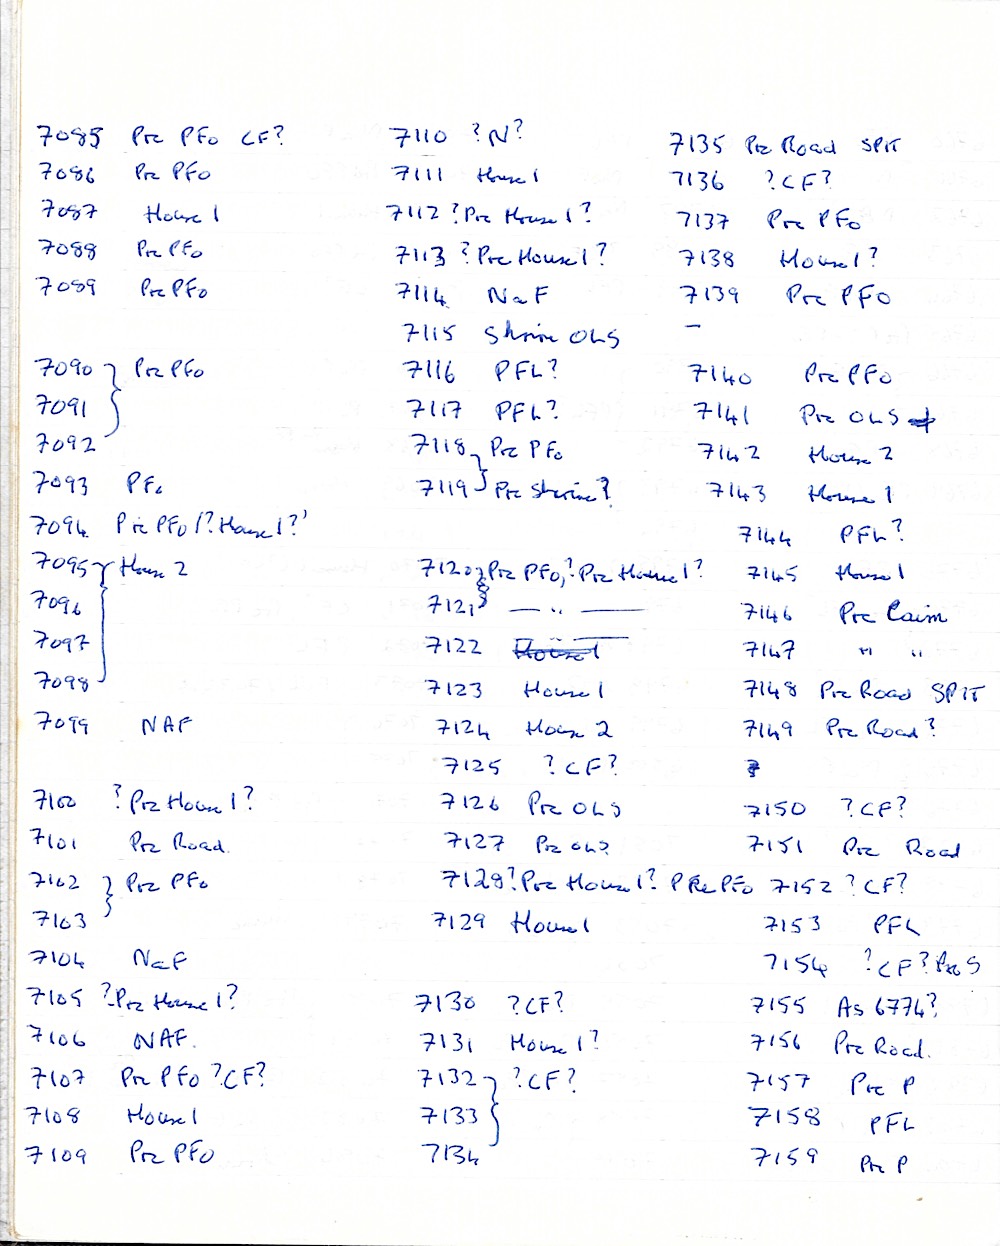 7085 Pre PFo CF?
7086 Pre PFo
7087 House 1
7088 Pre PFo
7089 Pre PFo
7090 } Pre PFo
7091
7092
7093 PFo
7094 Pre PFo (?House 1?)
7095 } House 2
7096
7097
7098
7099 NAF
7100 ?Pre House 1?
7101 Pre Road
7102 } Pre PFo
7103
7104 NaF
7105 ?Pre House 1?
7106 NAF.
7107 Pre PFo ?CF?
7108 House 1
7109 Pre PFo
7110 ?N?
7111 House 1
7112 ?Pre House 1?
7113 ?Pre House 1?
7114 NaF
7115 Shrine OLS
7116 PFL?
7117 PFL?
7118 } Pre PFo
7119 Pre Shrine?
7120 } Pre PFo, ?Pre House 1?
7121 — " —
7122 House 1
7123 House 1
7124 House 2
7125 ?CF?
7126 Pre OLS
7127 Pre OLS
7128 ?Pre House 1? PRe PFo
7129 House 1
7130 ?CF?
7131 House 1?
7132 } ?CF?
7133
7134
7135 Pre Road SPIT
7136 ?CF?
7137 Pre PFo
7138 House 1?
7139 Pre PFo
–
7140 Pre PFo
7141 Pre OLS
7142 House 2
7143 House 1
7144 PFL?
7145 House 1
7146 Pre Cairn
7147 " "
7148 Pre Road SPIT
7149 Pre Road?
7150 ?CF?
7151 Pre Road
7152 ?CF?
7153 PFL
7154 ?CF?
7155 As 6774?
7156 Pre Road.
7157 Pre P
7158 PFL
7159 Pre P